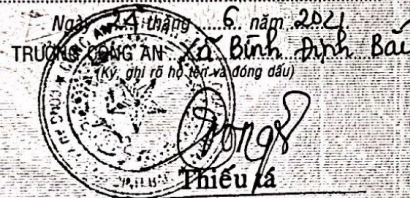 Ngày 24 tháng 6 năm 2021
TRƯỞNG CÔNG AN Xã Bình Định Bắc
(Ký, ghi rõ họ tên và đóng dấu)
Thiếu tá